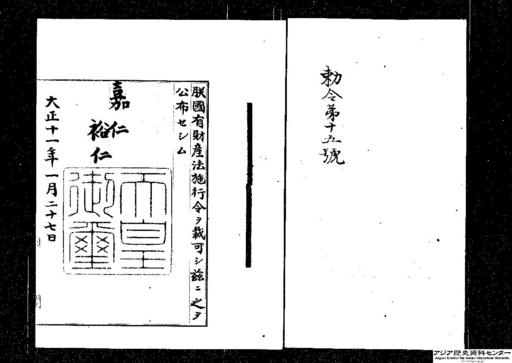 勅令第十五號
朕國有財産法施行令ヲ裁可シ茲ニ之ヲ
公布セシム
嘉仁
裕仁
天皇御璽
大正十一年一月二十七日
アジア歴史資料センター
Japan Center for Asian Historical Records